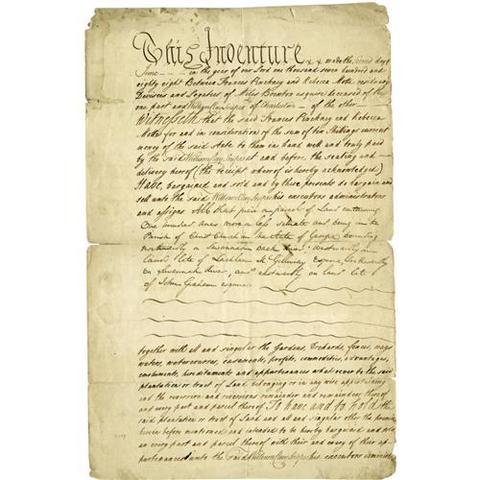 This Indenture made the day of
June in the year of our Lord one thousand seven hundred and
eighty eight Between Frances Pinckney and Rebecca Motte residuary
Devisees and Legatees of Miles Brewton esquire deceased of the
one part and of Charleston of the other
Witnesseth that the said Frances Pinckney and Rebecca
Motte for and in consideration of the sum of ten Shillings current
money of the said State to them in hand well and truly paid
by the said at and before the sealing and
delivery hereof (the receipt whereof is hereby acknowledged)
Have bargained and sold and by these presents do bargain and
sell unto the said his executors administrators
and assigns All that piece or parcel of Land containing
One hundred acres more or less situate and being in the
Parish of Christ Church in the State of Georgia bounding
on Savannah back river Westwardly on
Land late of Lachlan McGillivray esquire
on Savannah river, and eastwardly on land late
of John Graham esquire
together with all and singular the Gardens, Orchards, fences, ways
waters, watercourses, easements, profits, commodities, advantages,
emoluments, hereditaments and appurtenances whatsoever to the said
plantation or tract of Land belonging or in any wise appertaining
and the reversion and reversions remainder and remainders thereof
and every part and parcel thereof To have and to hold the
said plantation or tract of Land and all and singular other the premises
herein before mentioned and intended to be hereby bargained and sold
and every part and parcel thereof with their and every of their ap-
purtenances unto the said his executors administra